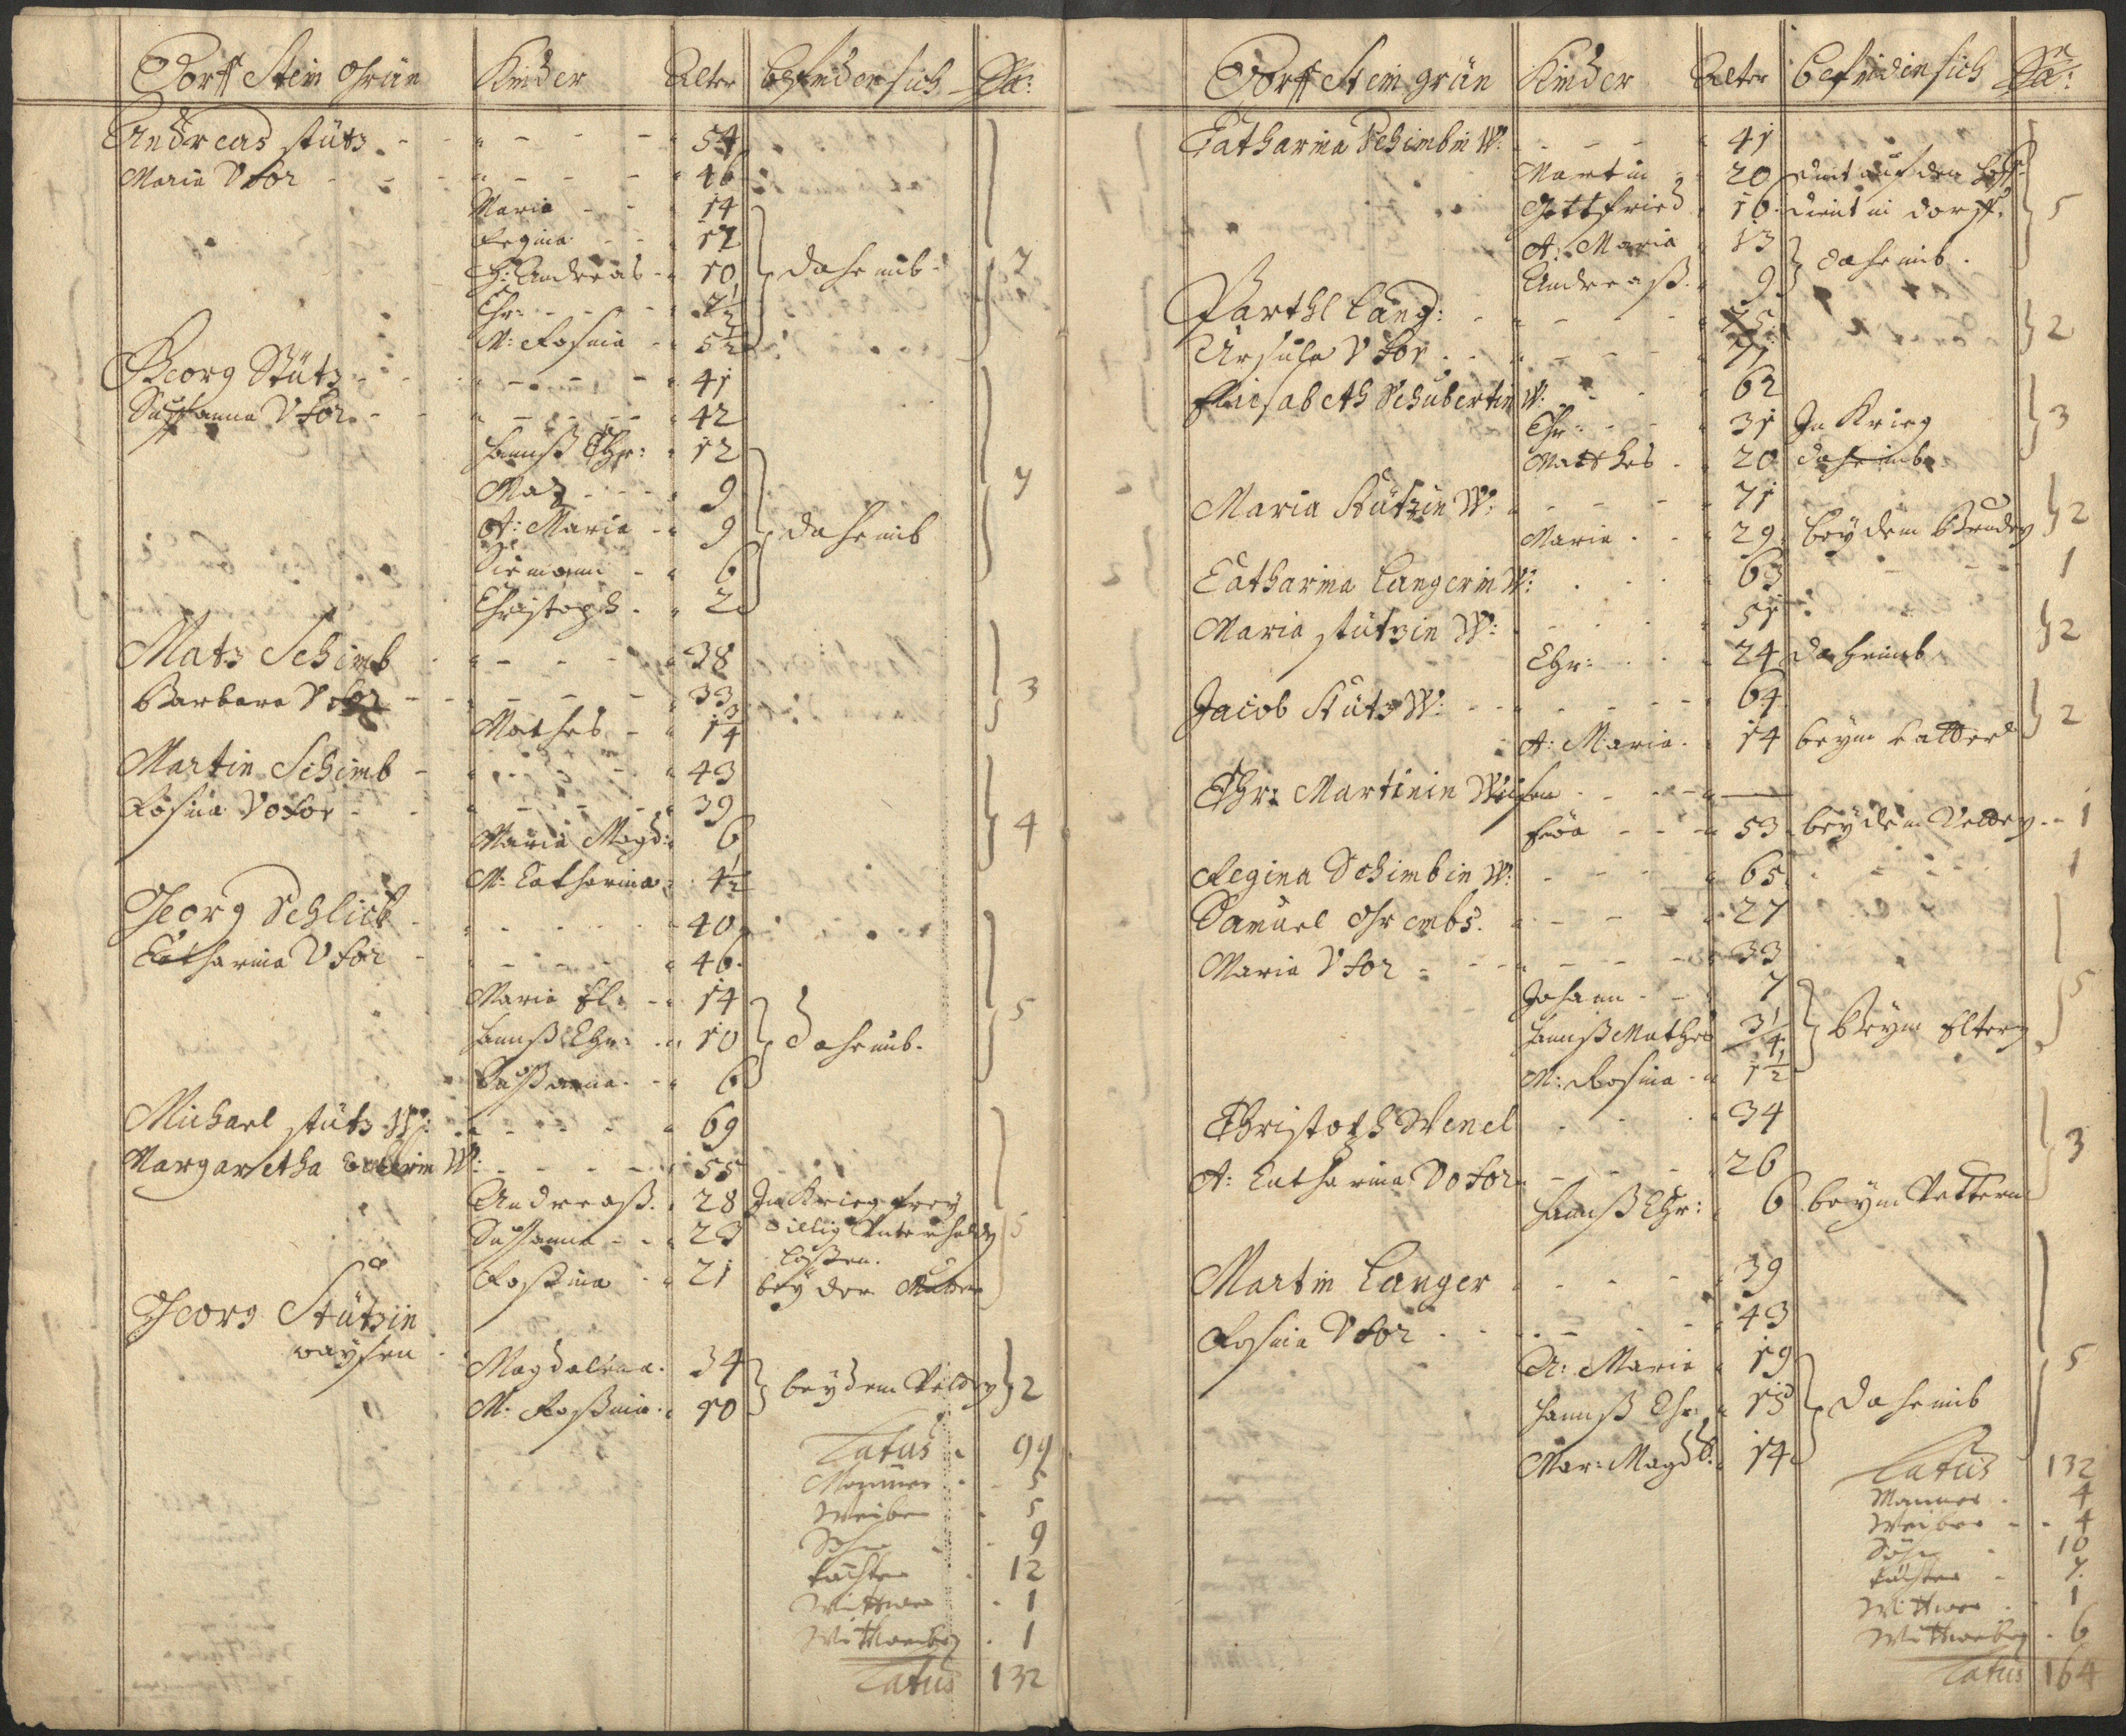 Dorff Stein Grün Kinder Alter befinden sich Sa:
Andreas Stütz 54
Maria Uxor 46
Maria 14
Regina 12
H: Andreas 10 daheimb 7
Chr: 7 1/2
M: Rosina 5 1/2
Georg Stütz 41
Susanna Uxor 42
Hannß Chr: 12
Matz 9 7
A: Maria 9 daheimb
6
Christoph 2
Matz Schimb 38
Barbara Uxor 33 3
Mathes 1 3/4
Martin Schimb 43
Rosina Uxor 39
Maria Magd: 6 4
M: Catharina 4 1/2
Georg Schlick 40
Catharina Uxor 46
Maria El: 14 5
Hannß Chr: 10 daheimb.
Susanna 6
Michael Stütz W: 69
Margaretha W: 55
Andreaß 28 In Krieg
Susanna 23 5
Rosina 21 bey der Mutter
Georg Stützin
waysen
Magdalena 34 bey dem 2
M: Rosina 10
Latus 99
Männer 5
Weiber 5
Söhn 9
Töchter 12
Wittwer 1
Wittweiber 1
Latus 132
Dorff Stein grün Kinder Alter befinden sich Sa:
Catharina Schimbin W: 41
Martin 20 dint auf den Hoff
Gottfried 16 dient in dorff 5
A: Maria 13 daheimb.
Andreaß 9
Barthl Lang: 75 2
Ursula Uxor 71
Elisabeth Schubertin W: 62
Chr: 31 In Krieg 3
Matthes 20 daheimb
Maria Stützin W: 71
Maria 29 bey dem Bruder 2
Catharina Langerin W: 63 1
Maria Stützin W: 51 2
Chr: 24 daheimb
Jacob Stütz W: 64
A: Maria 14 beym Vatter 2
Chr: Martinin Waisen
Eva 53 bey dem Vetter 1
Regina Schimbin W: 65 1
Samuel 27
Maria Uxor 33
Johann 7 5
Hannß Mathes 3 1/4 Beym Eltern
M: Rosina 1 1/2
Christoph Wenel 34
A: Catharina Uxor 26 3
Hannß Chr: 6 beym Vattern
Martin Langer 39
Rosina Uxor 43
A: Maria 19 5
Hannß Chr: 15 daheimb
Mar: Magd: 14
Latus 132
Männer 4
Weiber 4
Söhn 10
Töchter 7
Wittwer 1
Wittweiber 6
Latus 164